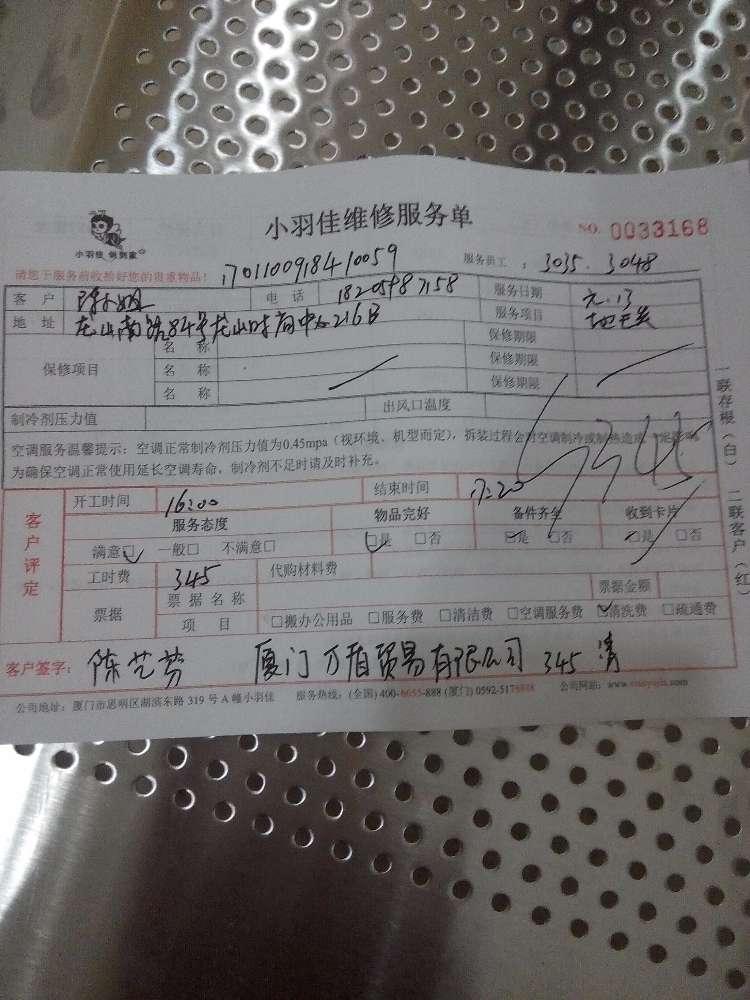 小羽佳维修服务单
NO. 0033168
小羽佳 做到家
请您于服务前收拾好您的贵重物品!
1701100918410059
服务员工: 3035. 3048
客户 陈小姐 电话 18205987158 服务日期 元.13
地址 龙山南路84号龙山时尚中心216B 服务项目
名称 保修期限
保修项目 名称 保修期限
名称 保修期限
制冷剂压力值 出风口温度
空调服务温馨提示:空调正常制冷剂压力值为0.45mpa(视环境、机型而定),拆装过程会对空调制冷或制热造成一定影响。
为确保空调正常使用延长空调寿命,制冷剂不足时请及时补充。
345
开工时间 16:00 结束时间 17:20
客户评定
服务态度 物品完好 备件齐全 收到卡片
满意□ 一般□ 不满意□ □是 □否 □是 □否 □是 □否
工时费 345 代购材料费
票据 票据名称 票据金额
项目 □搬办公用品 □服务费 □清洁费 □空调服务费 □清洗费 □疏通费
客户签字: 陈艺芬 厦门万盾贸易有限公司 345 清
公司地址:厦门市思明区湖滨东路 319 号 A 幢小羽佳 服务热线:(全国) 400-6655-888 (厦门) 0592-5178888 公司网站:
一联存根(白) 二联客户(红)